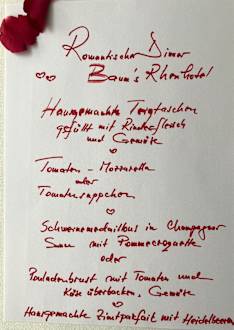 Romantischer Dinner
Baum's Rheinhotel
Hausgemachte Teigtaschen
gefüllt mit Rindefleisch
und Gemüse
Tomaten - Mozzarella
oder
Tomatensüppchen
Schweinemedaillons in Champagner
mit Pommecroquette
oder
Pouladenbrust mit Tomaten und
Käse überbacken, Gemüse
Hausgemachte Zimtparfait mit Heidelbeeren